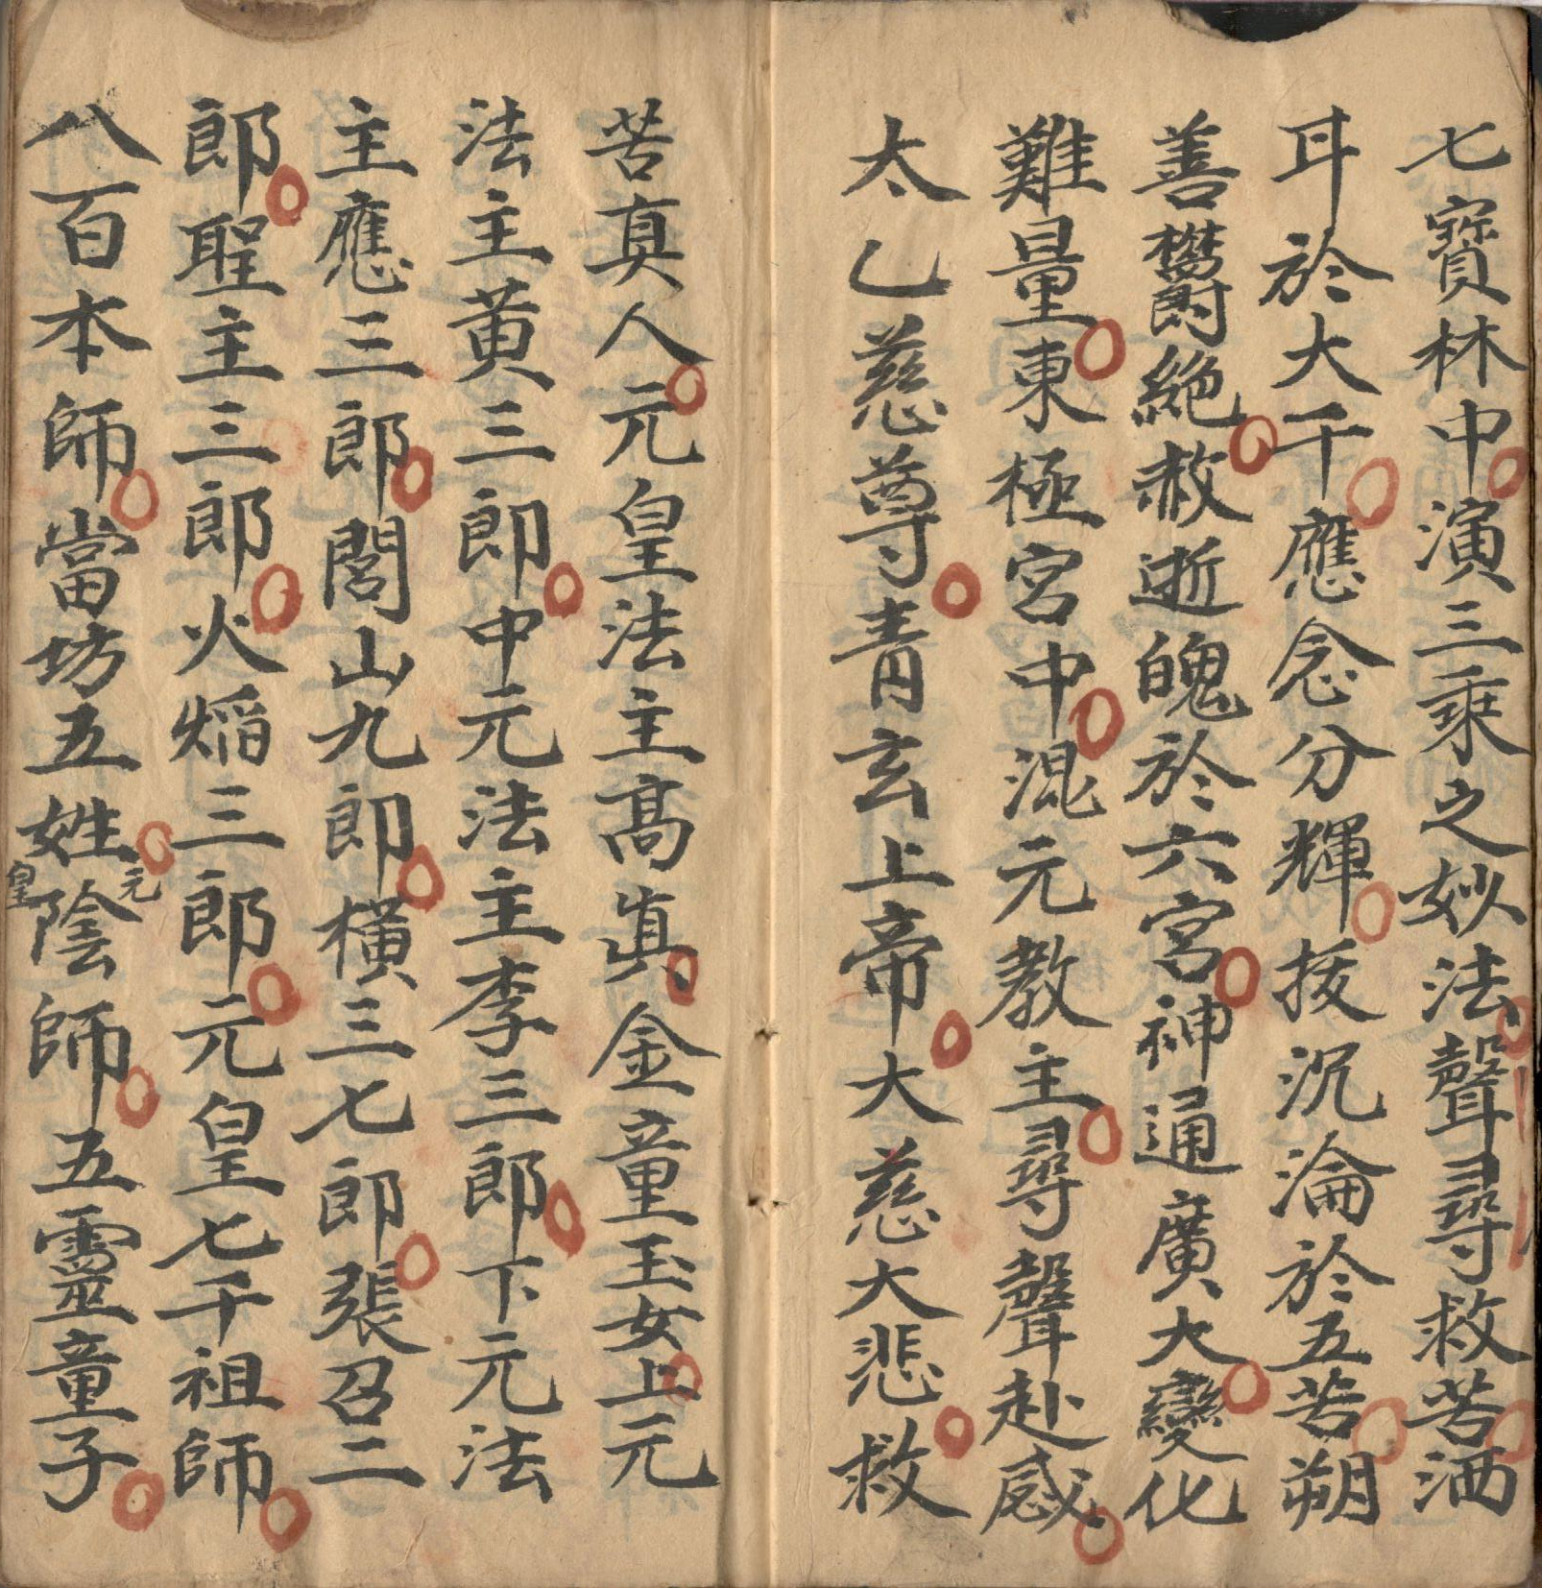 七寶林中演三乘之妙法聲尋救苦洒
耳於大千應念分輝拔沉淪於五苦朔
善欝絶赦逝魄於六宮神通廣大變化
難量東極宮中混元教主尋聲赴感
太乙慈尊青玄上帝大慈大悲救
苦真人元皇法主高真金童玉女上元
法主黄三郎中元法主李三郎下元法
主應三郎閭山九郎横三七郎張召二
郎聖主三郎火焰三郎元皇七千祖師
八百本師當坊五姓陰師五靈童子
元
皇